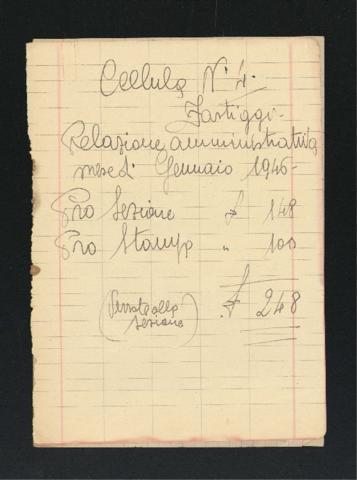 Cellula N° 4.
Fastiggi.
Relazione amministrativa
mese di Gennaio 1946-
Pro Sezione £ 148
Pro Stampa " 100
£ 248
(Versate alla
sezione)